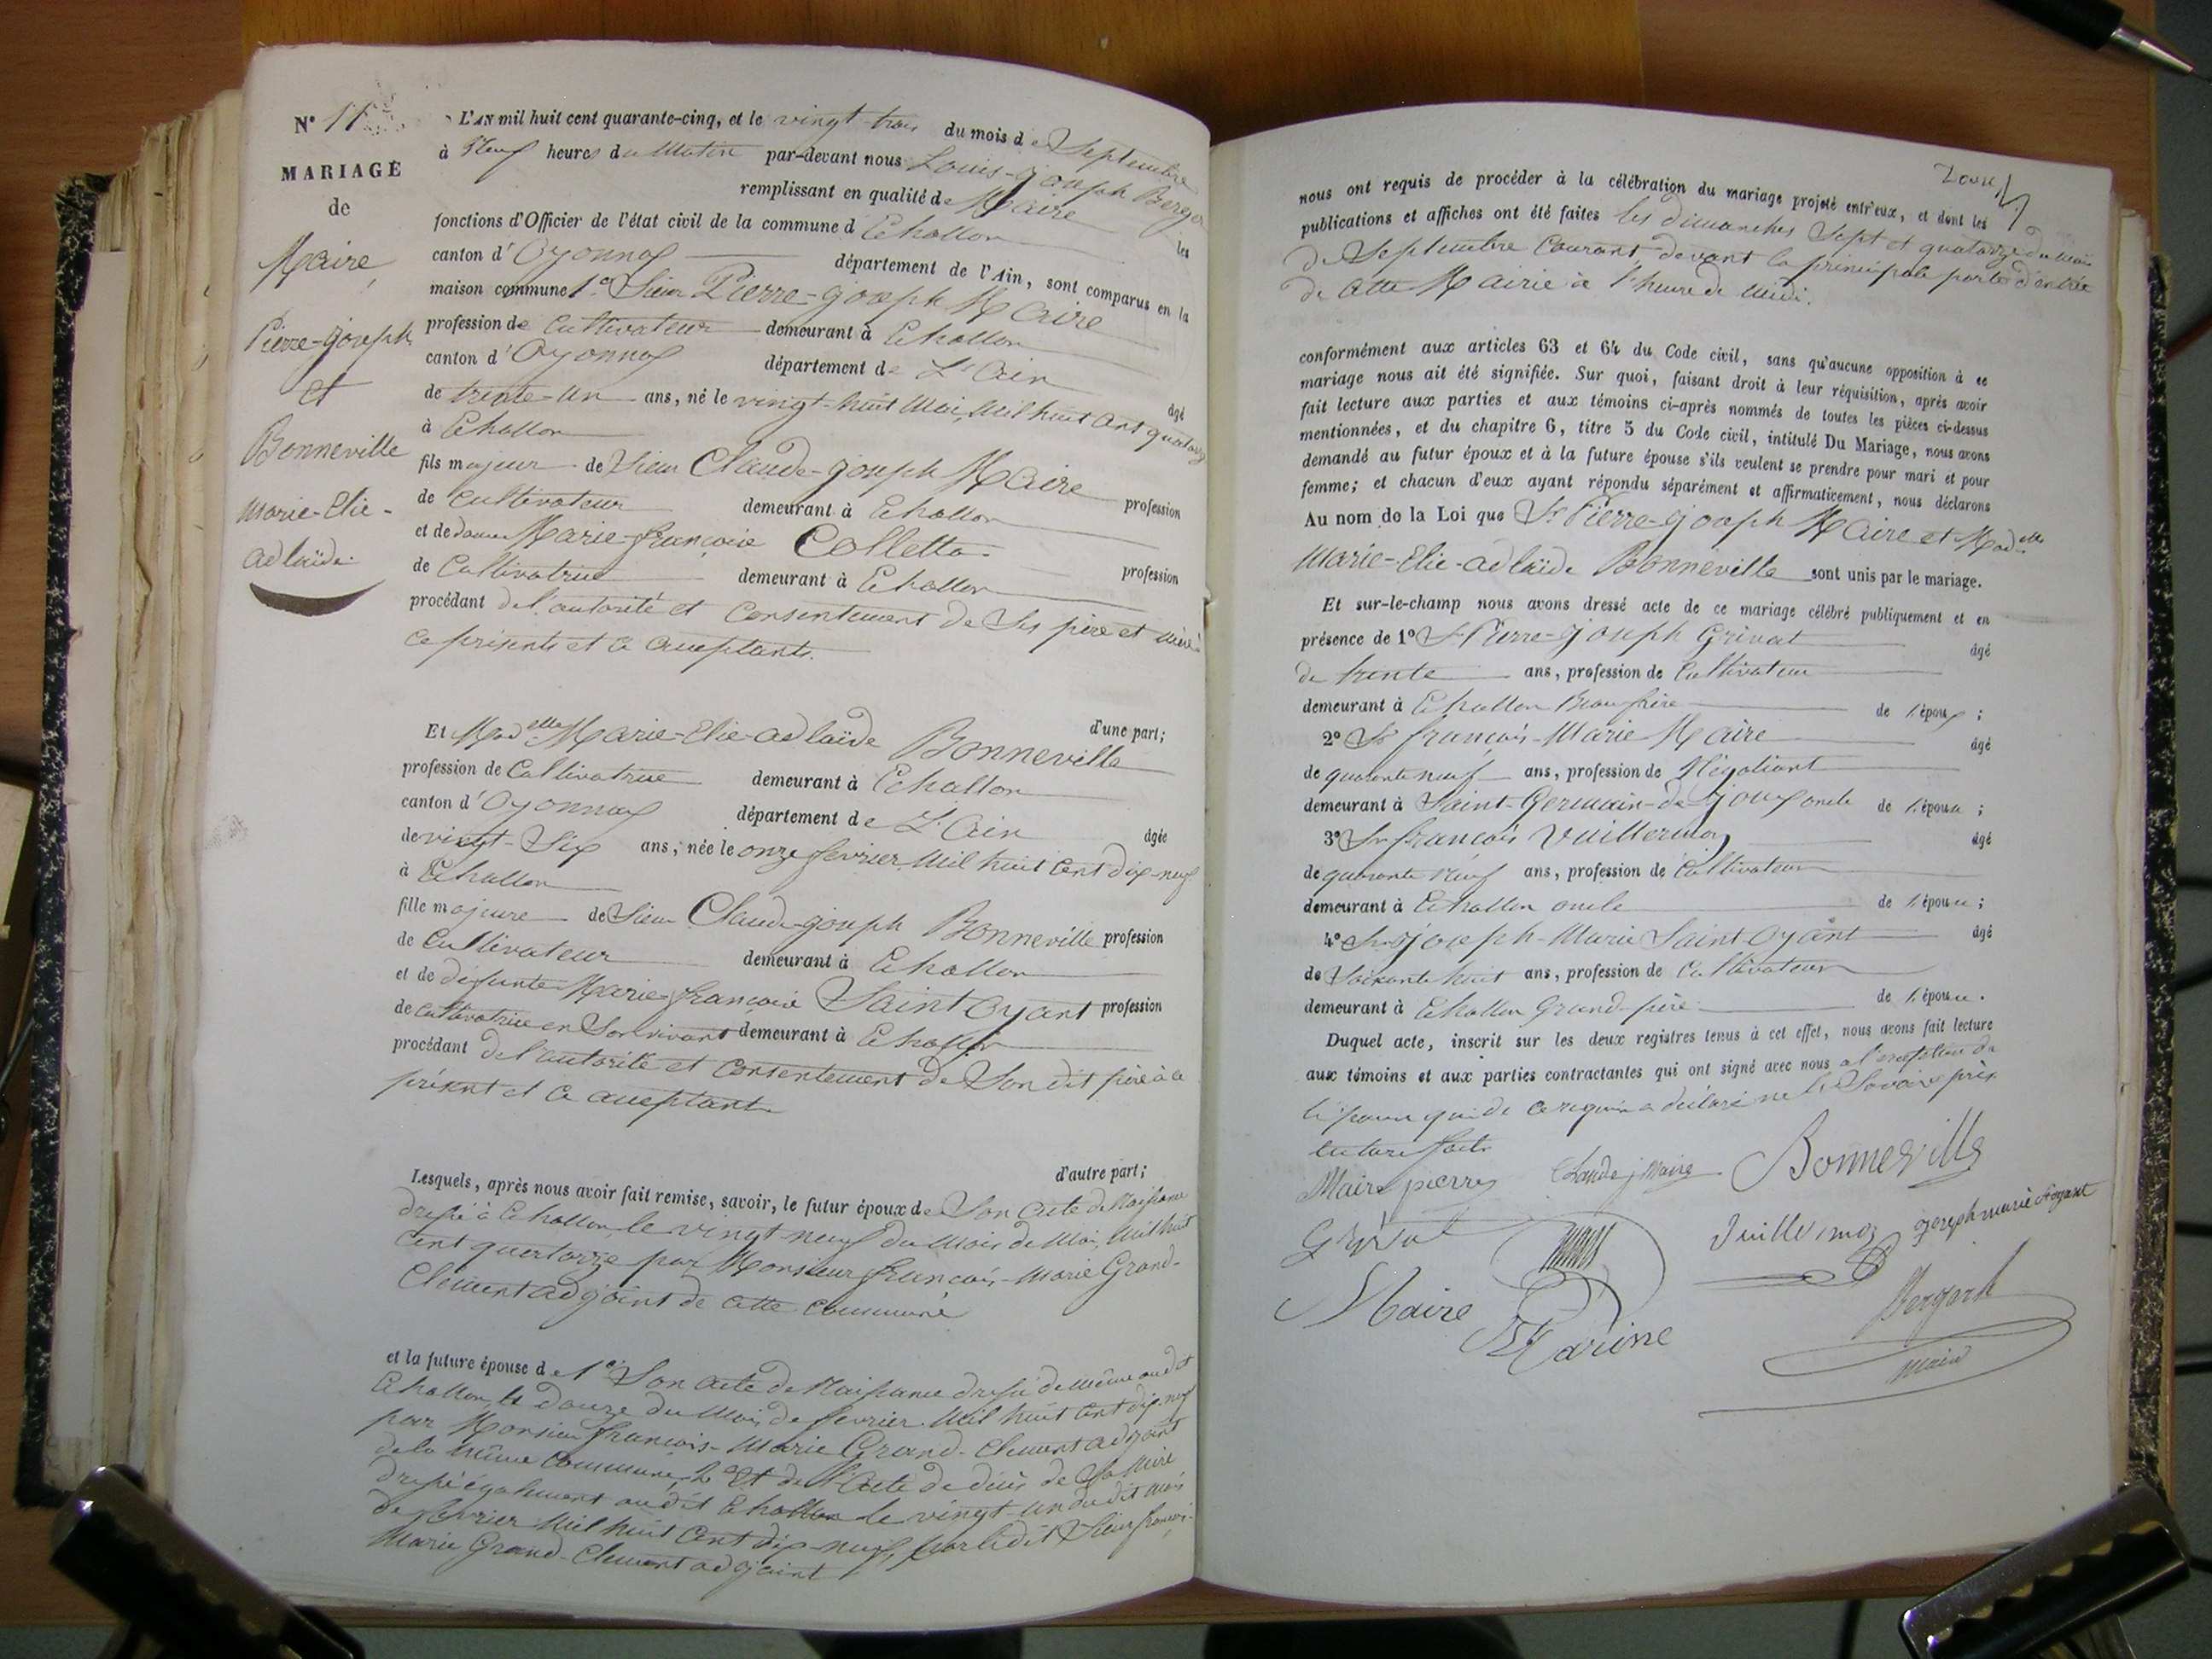 N° 11
MARIAGE
de
Maire,
Pierre-joseph
et
Bonneville
Marie-Elie-
adelaïde
L'AN mil huit cent quarante-cinq, et le vingt-trois du mois de Septembre
à Neuf heures du Matin par-devant nous Louis-joseph Berger
remplissant en qualité de Maire les
fonctions d'Officier de l'état civil de la commune d Echallon
canton d'Oyonnax département de l'Ain, sont comparus en la
maison commune 1° Sieur Pierre-joseph Maire
profession de Cultivateur demeurant à Echallon
canton d'Oyonnax département de L'Ain âgé
de trente-un ans, né le vingt-huit Mai, Mil huit cent quatorze
à Echallon
fils majeur de Sieur Claude-joseph Maire profession
de Cultivateur demeurant à Echallon
et de dame Marie-françoise Colletta profession
de Cultivatrice demeurant à Echallon
procédant de l'autorité et Consentement de Ses père et mère
ce présents et ce acceptants.
d'une part;
Et Mad.elle Marie-Elie-adelaïde Bonneville
profession de Cultivatrice demeurant à Echallon
canton d'Oyonnax département de L'Ain âgée
de vingt-Six ans, née le onze fevrier Mil huit Cent dix-neuf
à Echallon
fille majeure de Sieur Claude-joseph Bonneville profession
de Cultivateur demeurant à Echallon
et de defunte Marie-françoise Saint Oyant profession
de Cultivatrice en Son vivant demeurant à Echallon
procédant de l'autorité et Consentement de Son dit père à ce
présent et ce acceptant
d'autre part;
Lesquels, après nous avoir fait remise, savoir, le futur époux de Son acte de Naissance
dressé à Echallon, le vingt-neuf du Mois de Mai, Mil huit
Cent quatorze par Monsieur françois-Marie Grand-
Clement adjoint de cette Commune
et la future épouse de 1° Son acte de Naissance dressé de même audit
Echallon, le Douze du Mois de fevrier Mil huit Cent dix-neuf
par Monsieur françois-Marie Grand-Clement adjoint
de la même Commune, Et de l'acte de décès de Sa Mère
dressé également audit Echallon le vingt-un dudit mois
de fevrier Mil huit Cent dix-neuf, par ledit Sieur françois-
Marie Grand-Clement adjoint
nous ont requis de procéder à la célébration du mariage projeté entr'eux, et dont les
publications et affiches ont été faites les dimanches Sept et quatorze du Mois
de Septembre Courant, devant la principale porte d'entrée
de cette Mairie à l'heure de Midi.
conformément aux articles 63 et 64 du Code civil, sans qu'aucune opposition à ce
mariage nous ait été signifiée. Sur quoi, faisant droit à leur réquisition, après avoir
fait lecture aux parties et aux témoins ci-après nommés de toutes les pièces ci-dessus
mentionnées, et du chapitre 6, titre 5 du Code civil, intitulé Du Mariage, nous avons
demandé au futur époux et à la future épouse s'ils veulent se prendre pour mari et pour
femme; et chacun d'eux ayant répondu séparément et affirmativement, nous déclarons
Au nom de la Loi que Sr Pierre-joseph Maire et Mad.elle
Marie-Elie-adelaïde Bonneville sont unis par le mariage.
Et sur-le-champ nous avons dressé acte de ce mariage célébré publiquement et en
présence de 1° Sr Pierre-joseph Grivat âgé
de trente ans, profession de Cultivateur
demeurant à Echallon Beau frère de l'époux;
2° Sr françois-Marie Maire âgé
de quarante neuf ans, profession de Négotiant
demeurant à Saint-Germain-de-joux oncle de l'épouse;
3° Sr françois Vuillermoz âgé
de quarante neuf ans, profession de Cultivateur
demeurant à Echallon oncle de l'épouse;
4° Sr joseph-Marie Saint-Oyant âgé
de Soixante huit ans, profession de Cultivateur
demeurant à Echallon Grand-père de l'épouse.
Duquel acte, inscrit sur les deux registres tenus à cet effet, nous avons fait lecture
aux témoins et aux parties contractantes qui ont signé avec nous a l'exception de
l'épouse qui de ce requise a déclaré ne le Savoir après
lecture faite
Maire pierre Claude j Maire Bonneville
Grivat Vuillermoz joseph marie st oyant
Maire
maire